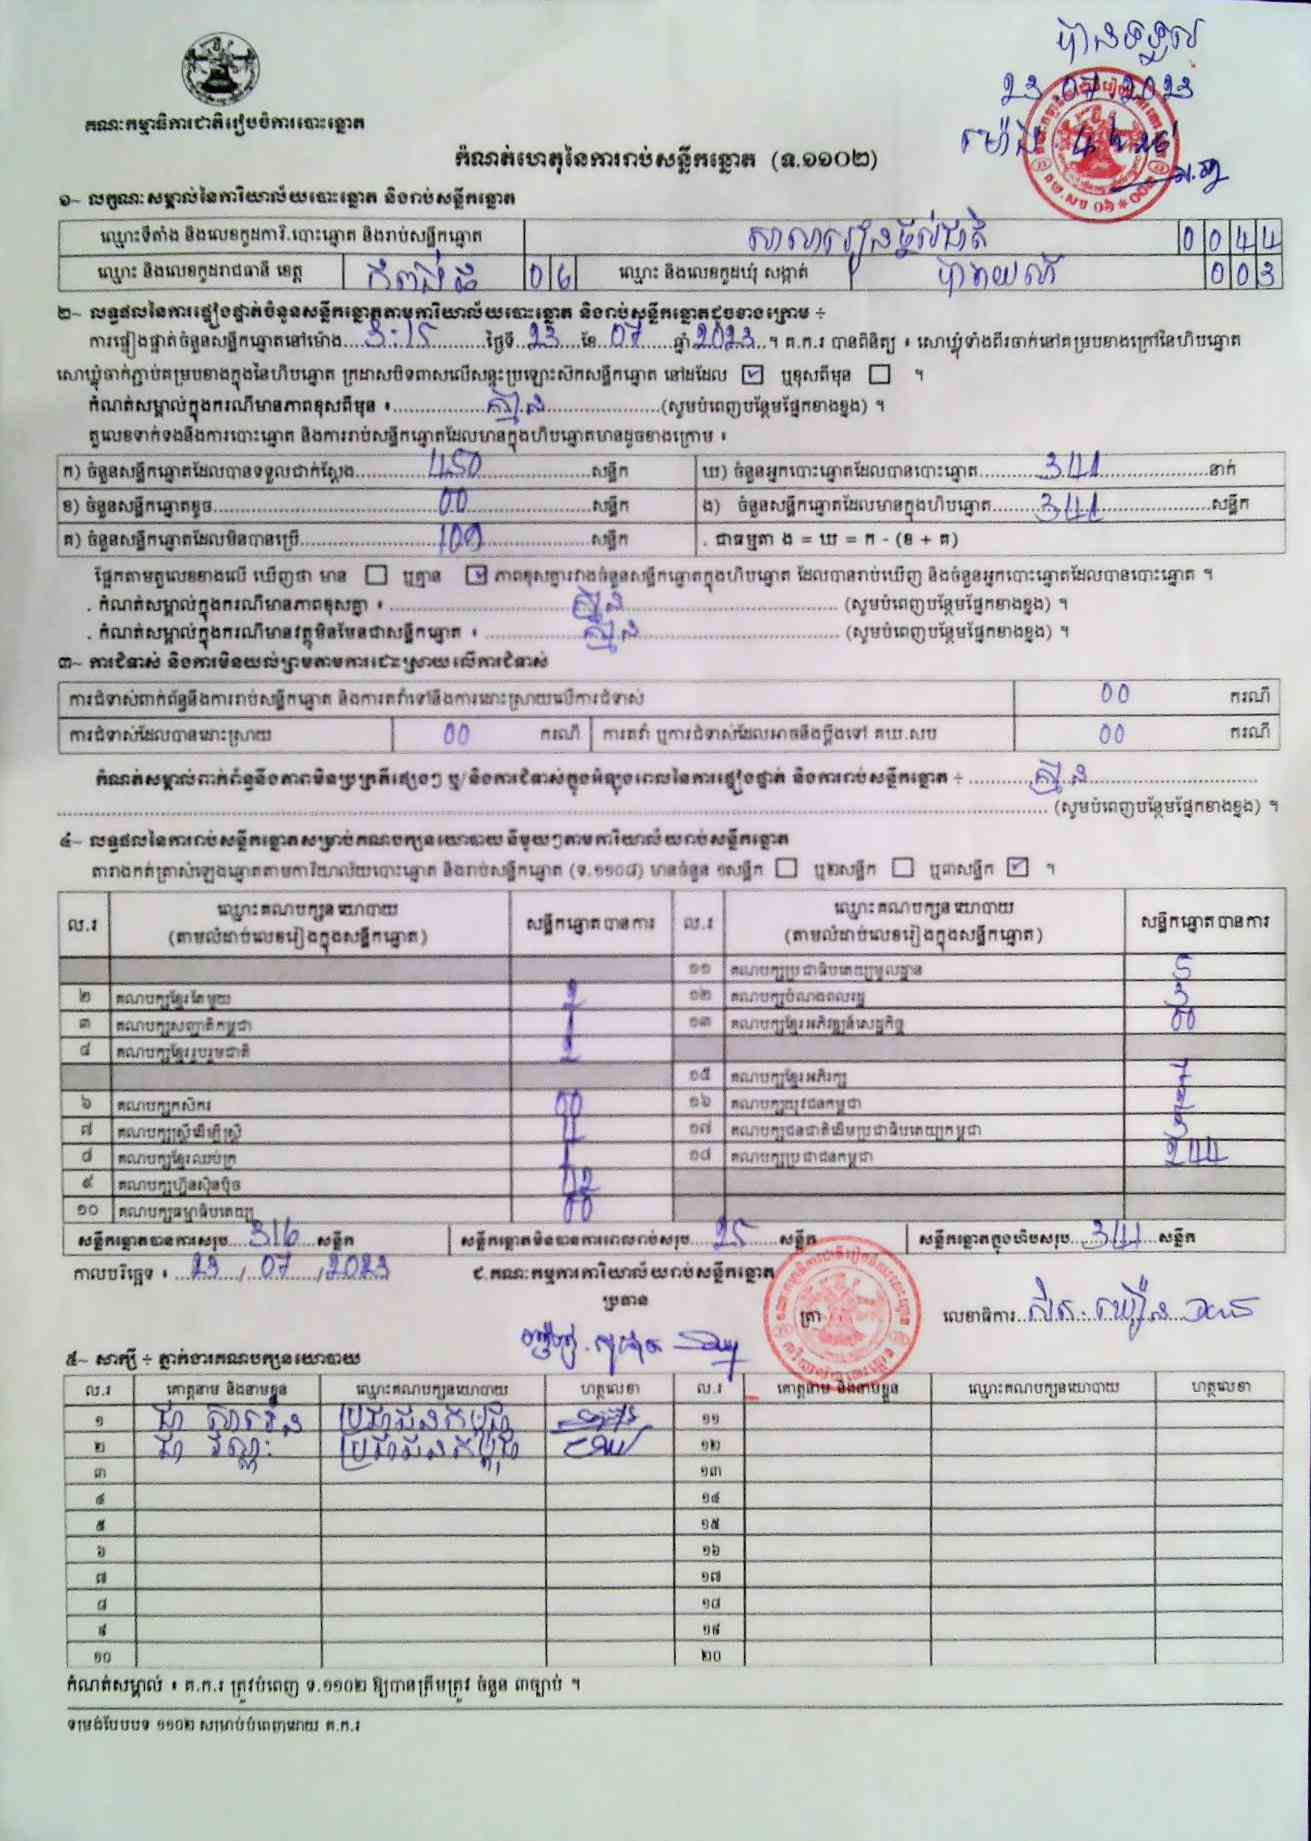 បានទទួល
23.07.2023
ម៉ោង
គណៈកម្មាធិការជាតិរៀបចំការបោះឆ្នោត
កំណត់ហេតុនៃការរាប់សន្លឹកឆ្នោត (ទ.១១០២)
១~ លក្ខណៈសម្គាល់នៃការិយាល័យបោះឆ្នោត និងរាប់សន្លឹកឆ្នោត
ឈ្មោះទីតាំង និងលេខកូដការិ.បោះឆ្នោត និងរាប់សន្លឹកឆ្នោត សាលារៀន 0 0 4 4
ឈ្មោះ និងលេខកូដរាជធានី ខេត្ត កំពង់ធំ 0 6 ឈ្មោះ និងលេខកូដឃុំ សង្កាត់ 0 0 3
២~ លទ្ធផលនៃការផ្ទៀងផ្ទាត់ចំនួនសន្លឹកឆ្នោតតាមការិយាល័យបោះឆ្នោត និងរាប់សន្លឹកឆ្នោតដូចខាងក្រោម ÷
ការផ្ទៀងផ្ទាត់ចំនួនសន្លឹកឆ្នោតនៅម៉ោង 3:15 ថ្ងៃទី 23 ខែ 07 ឆ្នាំ 2023 ។ គ.ក.រ បានពិនិត្យ ៖ សោឃ្លុំទាំងពីរចាក់នៅគម្របខាងក្រៅនៃហិបឆ្នោត
សោឃ្លុំចាក់ភ្ជាប់គម្របខាងក្នុងនៃហិបឆ្នោត ក្រដាសបិទពាសលើសន្ទះប្រឡោះស៊កសន្លឹកឆ្នោត នៅដដែល ☑ ឬខុសពីមុន ☐ ។
កំណត់សម្គាល់ក្នុងករណីមានភាពខុសពីមុន ៖ គ្មាន (សូមបំពេញបន្ថែមផ្នែកខាងខ្នង) ។
តួលេខទាក់ទងនឹងការបោះឆ្នោត និងការរាប់សន្លឹកឆ្នោតដែលមានក្នុងហិបឆ្នោតមានដូចខាងក្រោម ៖
ក) ចំនួនសន្លឹកឆ្នោតដែលបានទទួលជាក់ស្តែង 450 សន្លឹក ឃ) ចំនួនអ្នកបោះឆ្នោតដែលបានបោះឆ្នោត 341 នាក់
ខ) ចំនួនសន្លឹកឆ្នោតខូច 00 សន្លឹក ង) ចំនួនសន្លឹកឆ្នោតដែលមានក្នុងហិបឆ្នោត 341 សន្លឹក
គ) ចំនួនសន្លឹកឆ្នោតដែលមិនបានប្រើ 109 សន្លឹក . ជាធម្មតា ង = ឃ = ក - (ខ + គ)
ផ្អែកតាមតួលេខខាងលើ ឃើញថា មាន ☐ ឬគ្មាន ☑ ភាពខុសគ្នារវាងចំនួនសន្លឹកឆ្នោតក្នុងហិបឆ្នោត ដែលបានរាប់ឃើញ និងចំនួនអ្នកបោះឆ្នោតដែលបានបោះឆ្នោត ។
. កំណត់សម្គាល់ក្នុងករណីមានភាពខុសគ្នា ៖ គ្មាន (សូមបំពេញបន្ថែមផ្នែកខាងខ្នង) ។
. កំណត់សម្គាល់ក្នុងករណីមានវត្ថុមិនមែនជាសន្លឹកឆ្នោត ៖ គ្មាន (សូមបំពេញបន្ថែមផ្នែកខាងខ្នង) ។
៣~ ការជំទាស់ និងការមិនយល់ព្រមតាមការដោះស្រាយលើការជំទាស់
ការជំទាស់ពាក់ព័ន្ធនឹងការរាប់សន្លឹកឆ្នោត និងការតវ៉ាទៅនឹងការដោះស្រាយលើការជំទាស់ 00 ករណី
ការជំទាស់ដែលបានដោះស្រាយ 00 ករណី ការតវ៉ា ឬការជំទាស់ដែលអាចនឹងប្តឹងទៅ គឃ.សប 00 ករណី
កំណត់សម្គាល់ពាក់ព័ន្ធនឹងភាពមិនប្រក្រតីផ្សេងៗ ឬ/និងការជំទាស់ក្នុងអំឡុងពេលនៃការផ្ទៀងផ្ទាត់ និងការរាប់សន្លឹកឆ្នោត ÷ គ្មាន
(សូមបំពេញបន្ថែមផ្នែកខាងខ្នង) ។
៤~ លទ្ធផលនៃការរាប់សន្លឹកឆ្នោតសម្រាប់គណបក្សនយោបាយនីមួយៗតាមការិយាល័យរាប់សន្លឹកឆ្នោត
តារាងកត់ត្រាសំឡេងឆ្នោតតាមការិយាល័យបោះឆ្នោត និងរាប់សន្លឹកឆ្នោត (ទ.១១០៨) មានចំនួន ១សន្លឹក ☐ ឬ២សន្លឹក ☐ ឬ៣សន្លឹក ☑ ។
ល.រ ឈ្មោះគណបក្សនយោបាយ (តាមលំដាប់លេខរៀងក្នុងសន្លឹកឆ្នោត) សន្លឹកឆ្នោតបានការ ល.រ ឈ្មោះគណបក្សនយោបាយ (តាមលំដាប់លេខរៀងក្នុងសន្លឹកឆ្នោត) សន្លឹកឆ្នោតបានការ
១១ គណបក្សប្រជាធិបតេយ្យមូលដ្ឋាន 5
២ គណបក្សខ្មែរតែមួយ 2 ១២ គណបក្សបំណងពលរដ្ឋ 3
៣ គណបក្សសញ្ជាតិកម្ពុជា 1 ១៣ គណបក្សខ្មែរអភិវឌ្ឍន៍សេដ្ឋកិច្ច 00
៤ គណបក្សខ្មែររួបរួមជាតិ
១៥ គណបក្សខ្មែរអភិរក្ស
៦ គណបក្សកសិករ 00 ១៦ គណបក្សយុវជនកម្ពុជា
៧ គណបក្សស្ត្រីដើម្បីស្ត្រី ១៧ គណបក្សជនជាតិដើមប្រជាធិបតេយ្យកម្ពុជា
៨ គណបក្សខ្មែរឈប់ក្រ 1 ១៨ គណបក្សប្រជាជនកម្ពុជា 244
៩ គណបក្សហ៊្វុនស៊ិនប៉ិច 02
១០ គណបក្សធម្មាធិបតេយ្យ 00
សន្លឹកឆ្នោតបានការសរុប 316 សន្លឹក សន្លឹកឆ្នោតមិនបានការពេលរាប់សរុប 25 សន្លឹក សន្លឹកឆ្នោតក្នុងហិបសរុប 341 សន្លឹក
កាលបរិច្ឆេទ ៖ 23/07/2023 ជ.គណៈកម្មការការិយាល័យរាប់សន្លឹកឆ្នោត
ប្រធាន
ត្រា លេខាធិការ
៥~ សាក្សី ÷ ភ្នាក់ងារគណបក្សនយោបាយ
ល.រ គោត្តនាម និងនាមខ្លួន ឈ្មោះគណបក្សនយោបាយ ហត្ថលេខា ល.រ គោត្តនាម និងនាមខ្លួន ឈ្មោះគណបក្សនយោបាយ ហត្ថលេខា
១ ប្រជាជនកម្ពុជា ១១
២ ប្រជាជនកម្ពុជា ១២
៣ ១៣
៤ ១៤
៥ ១៥
៦ ១៦
៧ ១៧
៨ ១៨
៩ ១៩
១០ ២០
កំណត់សម្គាល់ ៖ គ.ក.រ ត្រូវបំពេញ ទ.១១០២ ឱ្យបានត្រឹមត្រូវ ចំនួន ៣ច្បាប់ ។
ទម្រង់បែបបទ ១១០២ សម្រាប់បំពេញដោយ គ.ក.រ